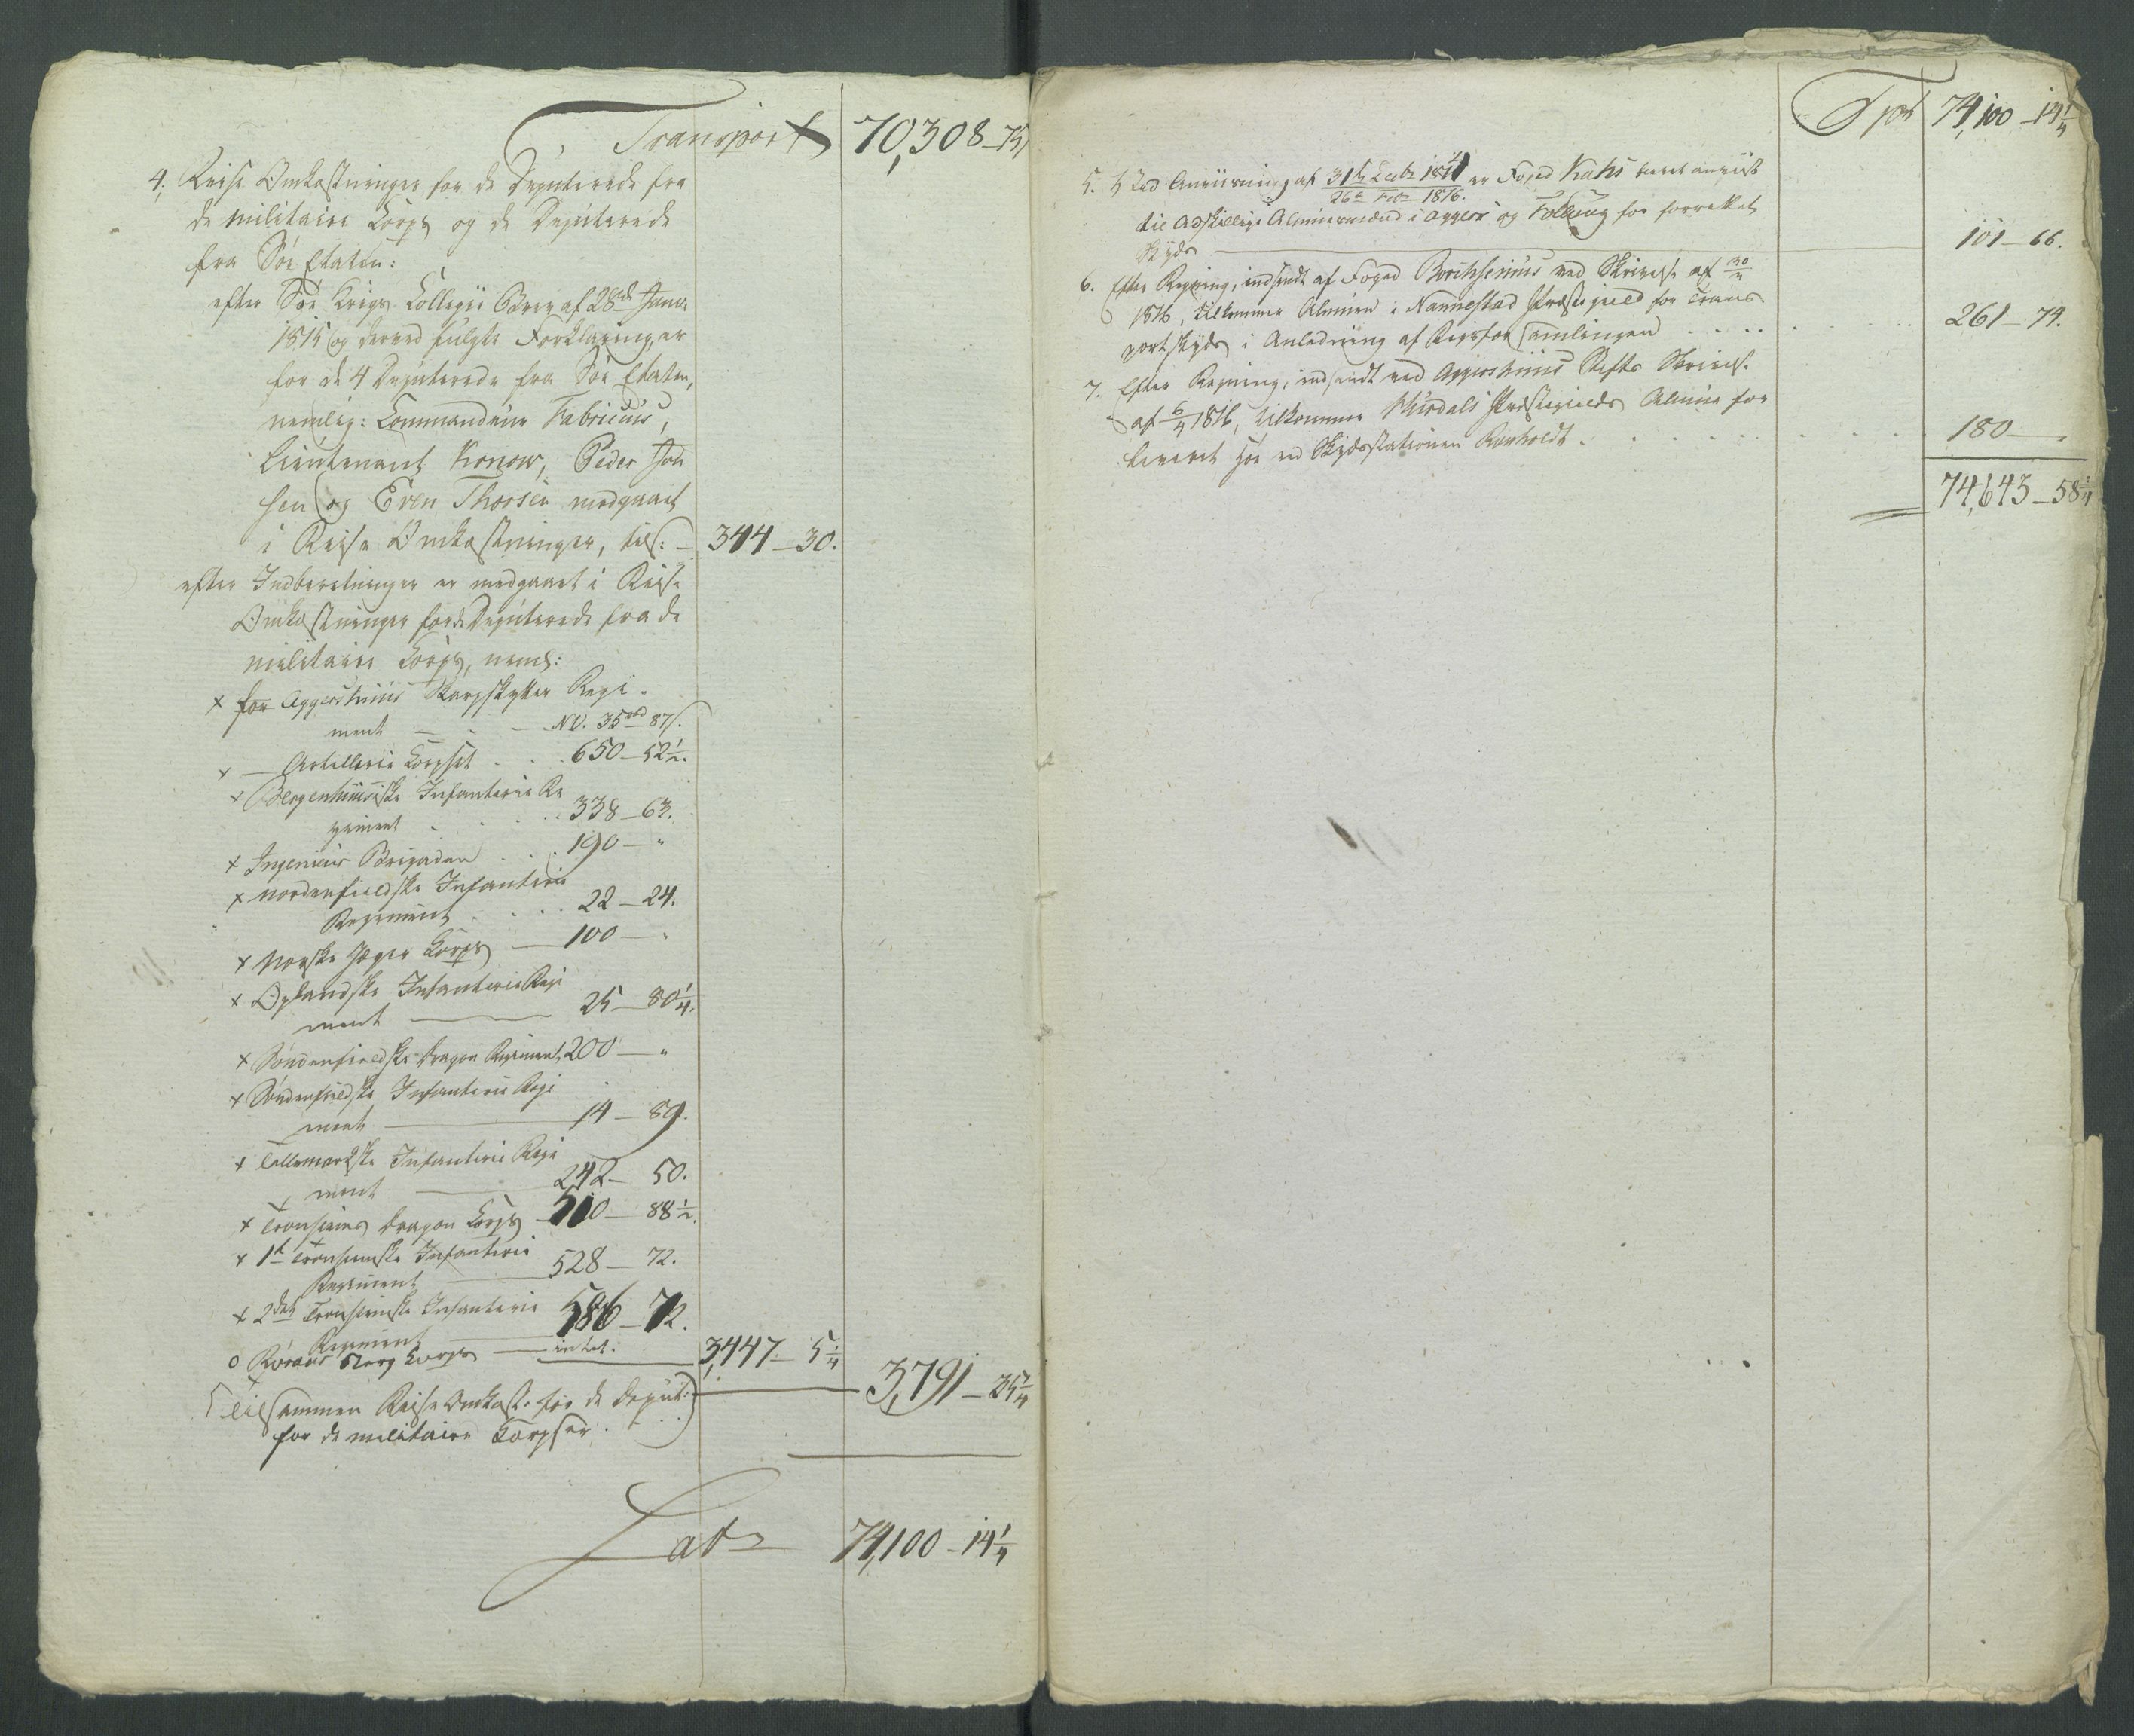 Transport 70,308 - 75
4. Reise Omkostninger for de Deputerede fra
de militaire Corps og de Deputerede
fra Söe Etaten:
efter Söe Krigs Collegii Brev af 28de Janr
1815 og derved fulgte Forklaringer
for de 4 Deputerede fra Söe Etaten,
nemlig: Commandeur Fabricius,
Lieutenant Konow, Peder Joh
sen og Even Thorsen medgaaet
i Reise Omkostninger, tils: - 344 - 30.
efter Indberetninger er medgaaet i Reise
Omkostninger for de Deputerede fra de
militaire Corps, neml:
x for Aggershuus Skarpskytter Regi-
ment - - - NV. 35 rbd 87 s.
x — Artillerie Corpset . . . 650 - 52 1/2.
x Bergenhuusiske Infanterie Re
giment . . . . 338 - 63.
x Ingenieur Brigaden . . . 190 - "
x Nordenfieldske Infanterie
Regiment . . . . 22 - 24.
x Norske Jæger Corps — 100 - "
x Oplandske Infanterie Regi
ment — 25 - 80 1/4.
x Söndenfieldske Dragon Regiment, 200 - "
x Söndenfieldske Infanterie Regi
ment — 14 - 89.
x Tellemarkske Infanterie Regi
ment — 242 - 50.
x Tronhiems Dragon Corps — 510 - 88 1/2.
x 1te Tronhiemske Infanterie
Regiment — 528 - 72.
x 2det Tronhiemske Infanterie
Regiment — 586 - 72.
o Röraas Berg Corps — intet. 3,447 - 5 1/4
Tilsammen Reise Omkost. for de Deput:
for de militaire Corpser . 3,791 - 35 1/4
Lat 74,100 - 14 1/4
Tpt 74,100 - 14 1/4
5. Ved Anviisning af 31te Decbr 1814 er Foged Kuhs bleven anviist
26de Febr 1816.
til adskillige Almuesmænd i Aggers og Folloug for forrettet
Skyds — 101 - 66.
6. Efter Regning, indsendt af Foged Borchsenius med Skrivelse af 30/
1816, tilkommer Almuen i Nannestad Præstegield for Trans-
portskyds i Anledning af Rigsforsamlingen . . . . 261 - 74.
7. Efter Regning, indsendt med Aggershuus Stifts Skrivels.
af 6/4 1816, tilkommer Præstegields Almue for
leveret Höe ved Skydsstationen . . . 180 - "
74,643 - 58 1/4